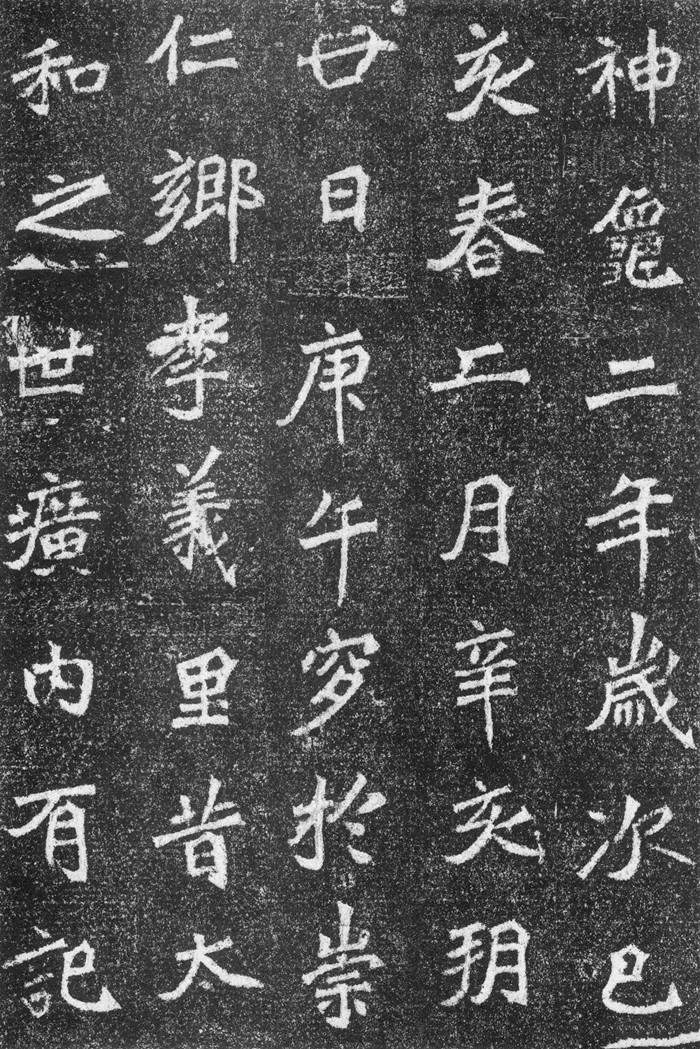 神龜二年歲次己
亥春二月辛亥朔
廿日庚午窆於崇
仁鄉孝義里昔太
和之世壙内有記